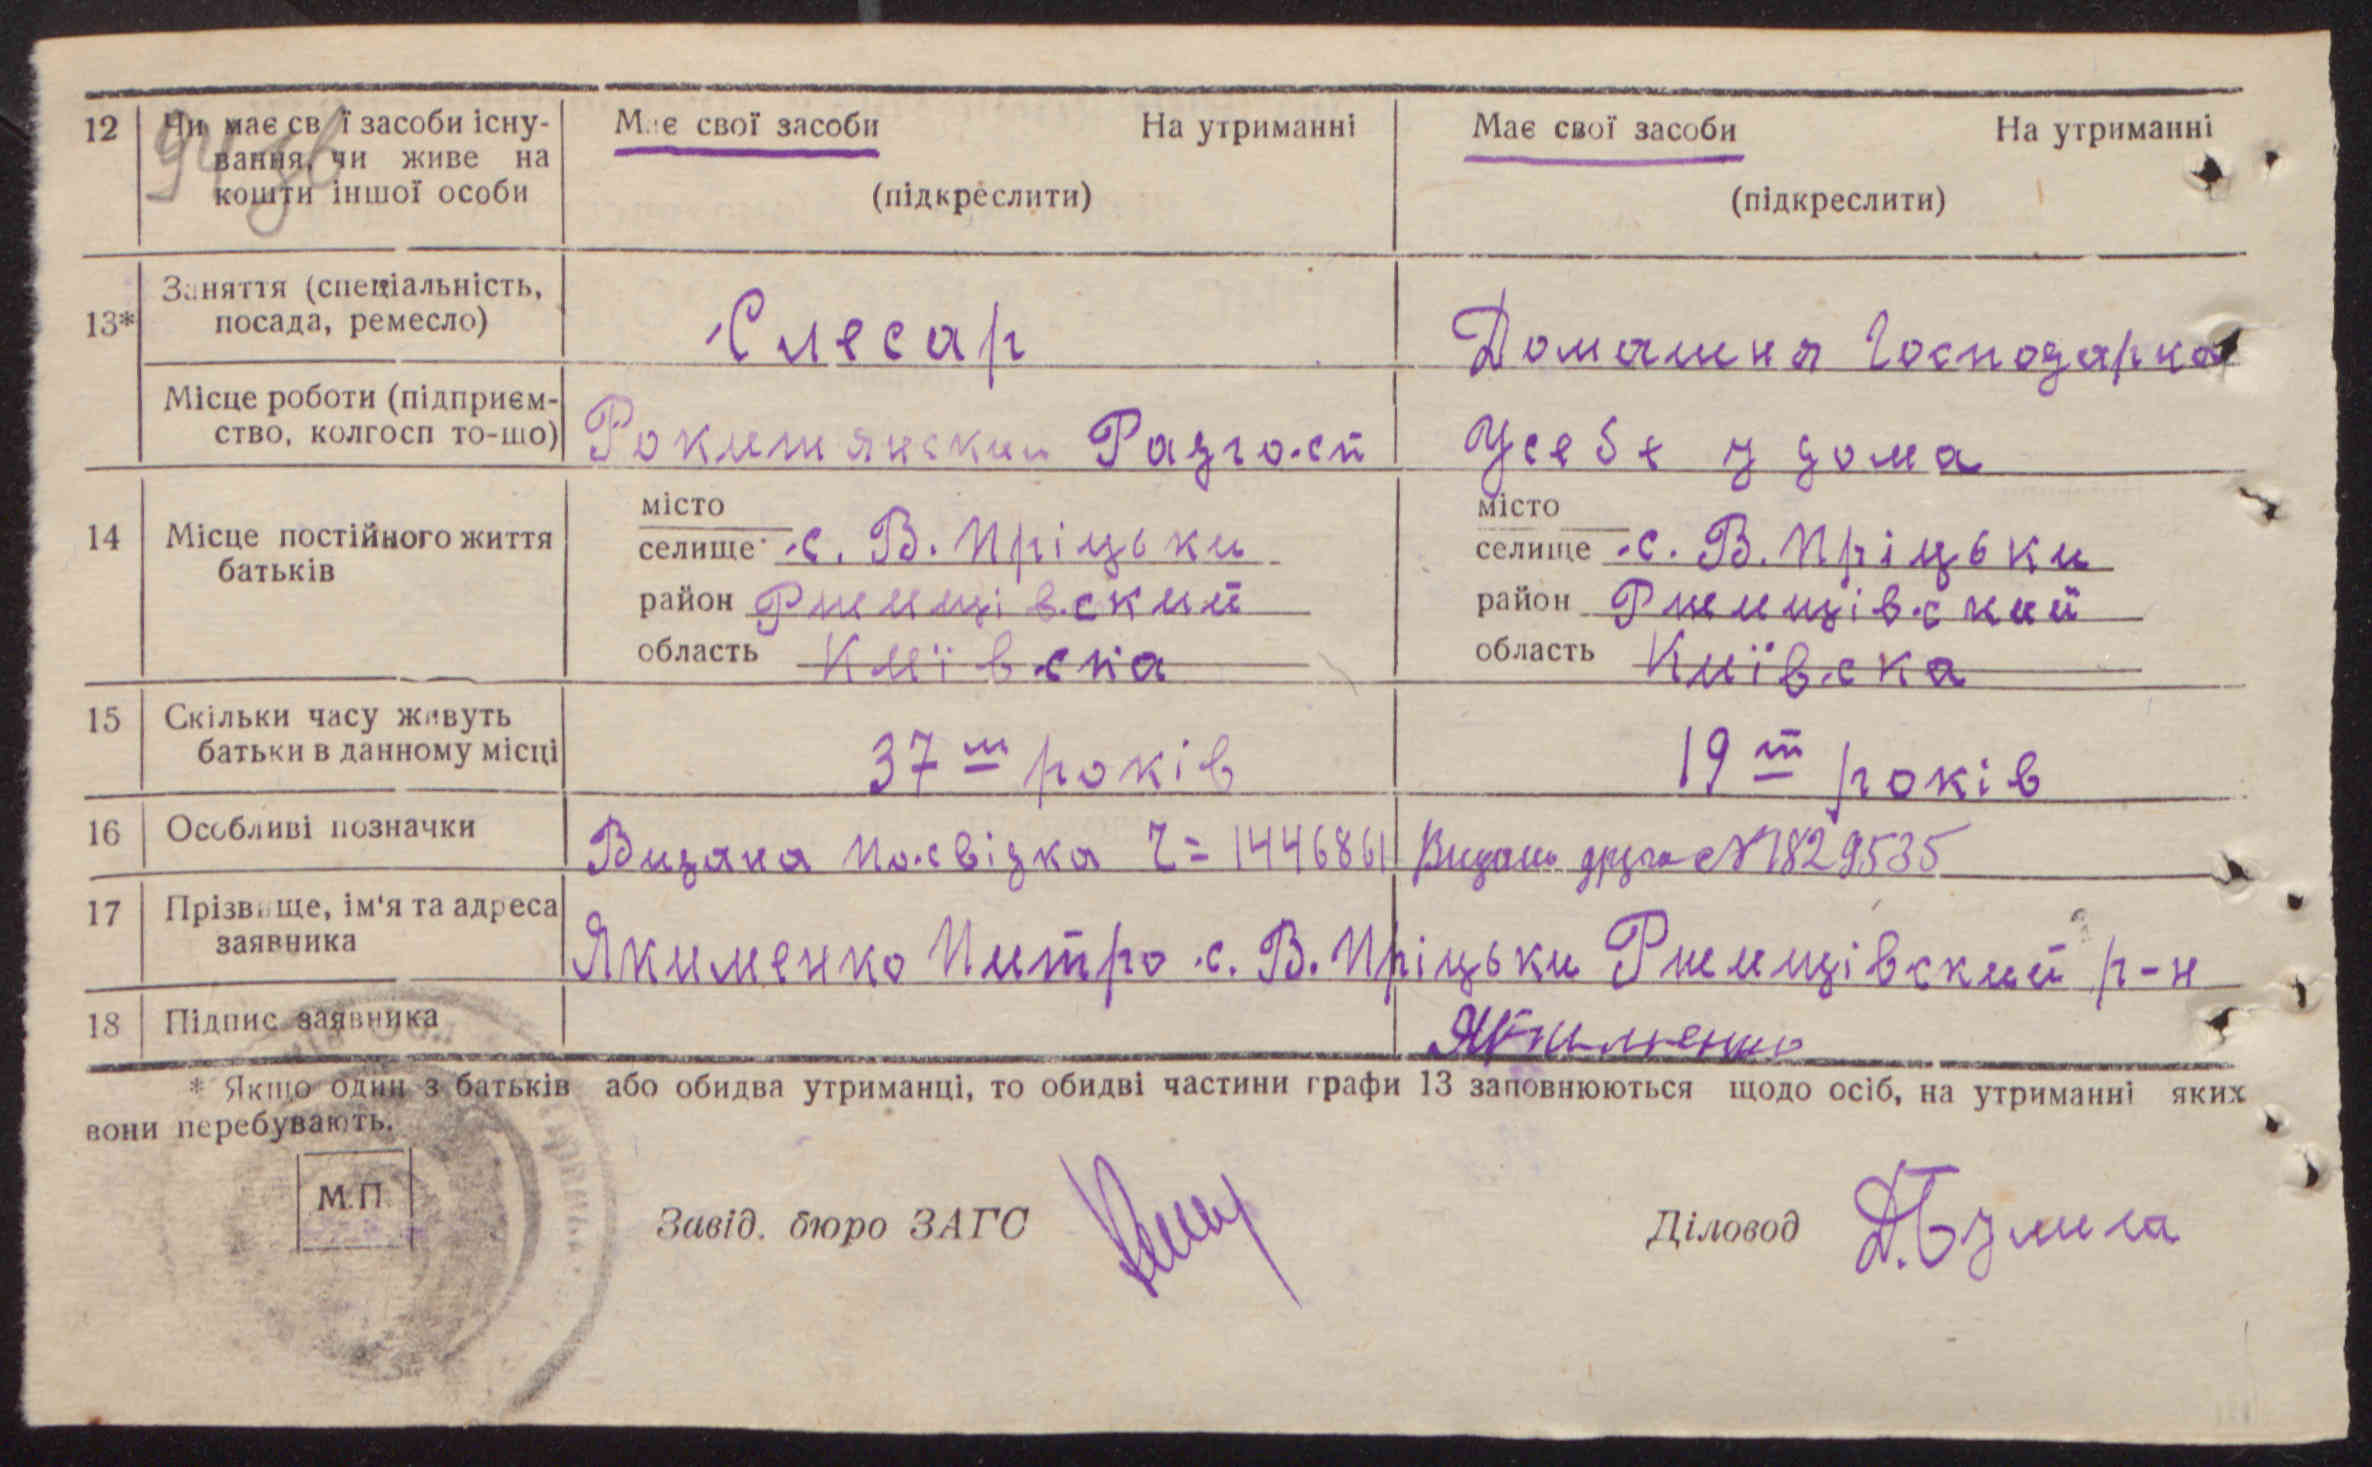 12 Чи має свої засоби існу- Має свої засоби На утриманні Має свої засоби На утриманні
вання, чи живе на
кошти іншої особи (підкреслити) (підкреслити)
Заняття (спеціальність,
13* посада, ремесло) Слесар Домашня Господарка
Місце роботи (підприєм-
ство, колгосп то-що) Рокитянский Радгосп Усебе у дома
місто місто
14 Місце постійного життя селище с. В. Пріцьки селище с. В. Пріцьки
батьків
район Ржищівский район Ржищівский
область Київска область Київска
15 Скільки часу живуть
батьки в данному місці 37 т років 19 т років
16 Особливі позначки Видана посвідка Ч= 1446861 Видано друге № 1829535
17 Прізвище, ім'я та адреса
заявника Якименко Питро с. В. Пріцьки Ржищівский р-н
18 Підпис заявника Якименко
* Якщо один з батьків або обидва утриманці, то обидві частини графи 13 заповнюються щодо осіб, на утриманні яких
вони перебувають.
М.П.
Завід. бюро ЗАГС Діловод